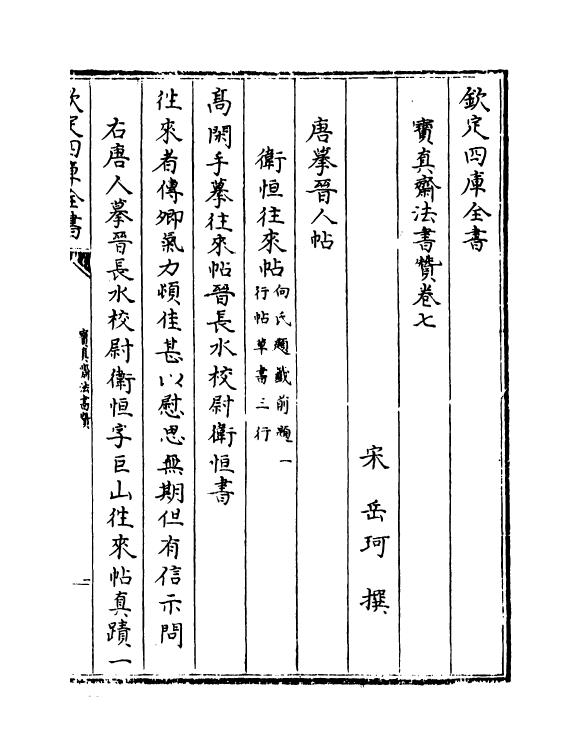 欽定四庫全書
寶真齋法書贊卷七
宋 岳珂 撰
唐摹晉人帖
衛恒往來帖向氏題籖前題一行帖草書三行
高閑手摹往來帖晉長水校尉衛恒書
往來者傳卿氣力頗佳甚以慰思無期但有信示問
右唐人摹晉長水校尉衛恒字巨山往來帖真蹟一
欽定四庫全書
寶真齋法書贊
一